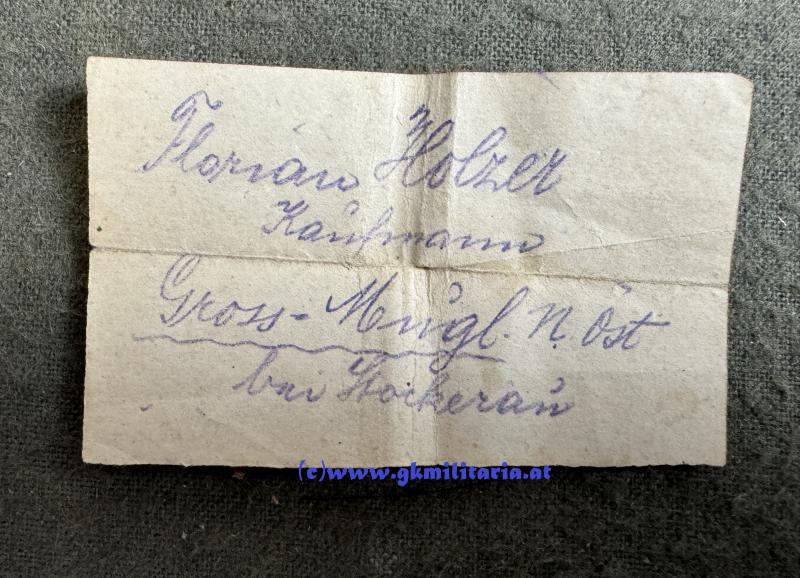 Florian Holzer
Kaufmann
Gross-Mugl. N. Öst
bei Stockerau
(c)www.gkmilitaria.at